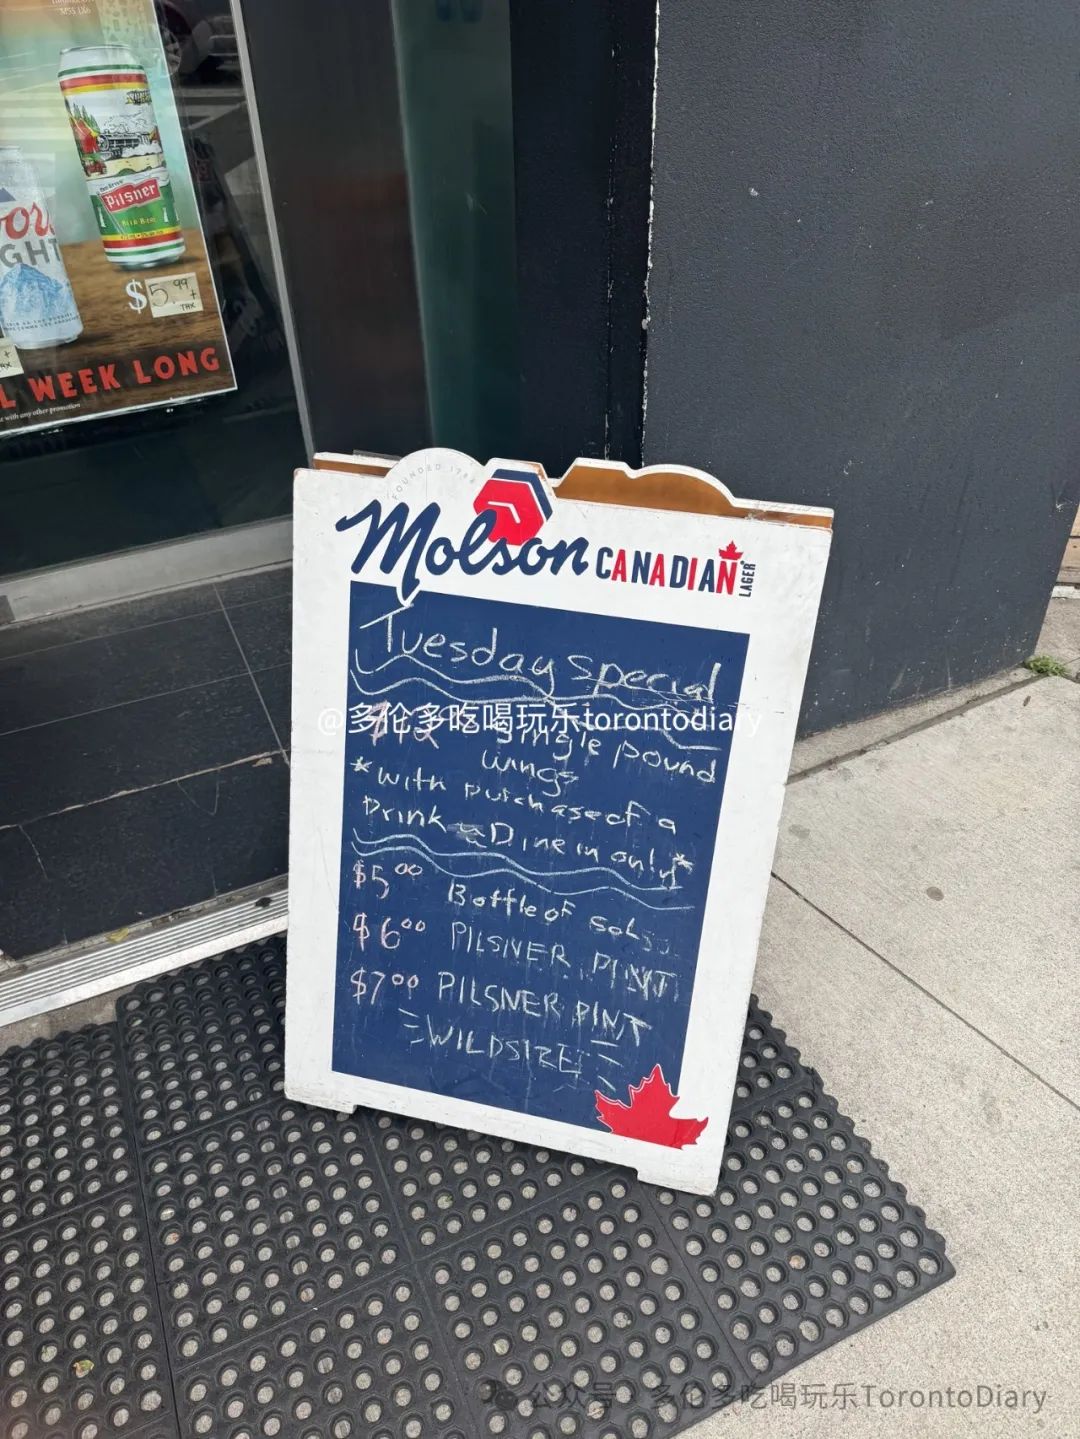 M5S 1X6
Pilsner
$5.99
+
TAX
GHT
L WEEK LONG
with any other promotion
FOUNDED 1786
Molson CANADIAN LAGER
Tuesday Special
@多伦多吃喝玩乐torontodiary
$12 single pound
wings
*with purchase of a
Drink Dine in only*
$5.00 Bottle of
$6.00 PILSNER PINT
$7.00 PILSNER PINT
WILDSIZE
公众号·多伦多吃喝玩乐TorontoDiary